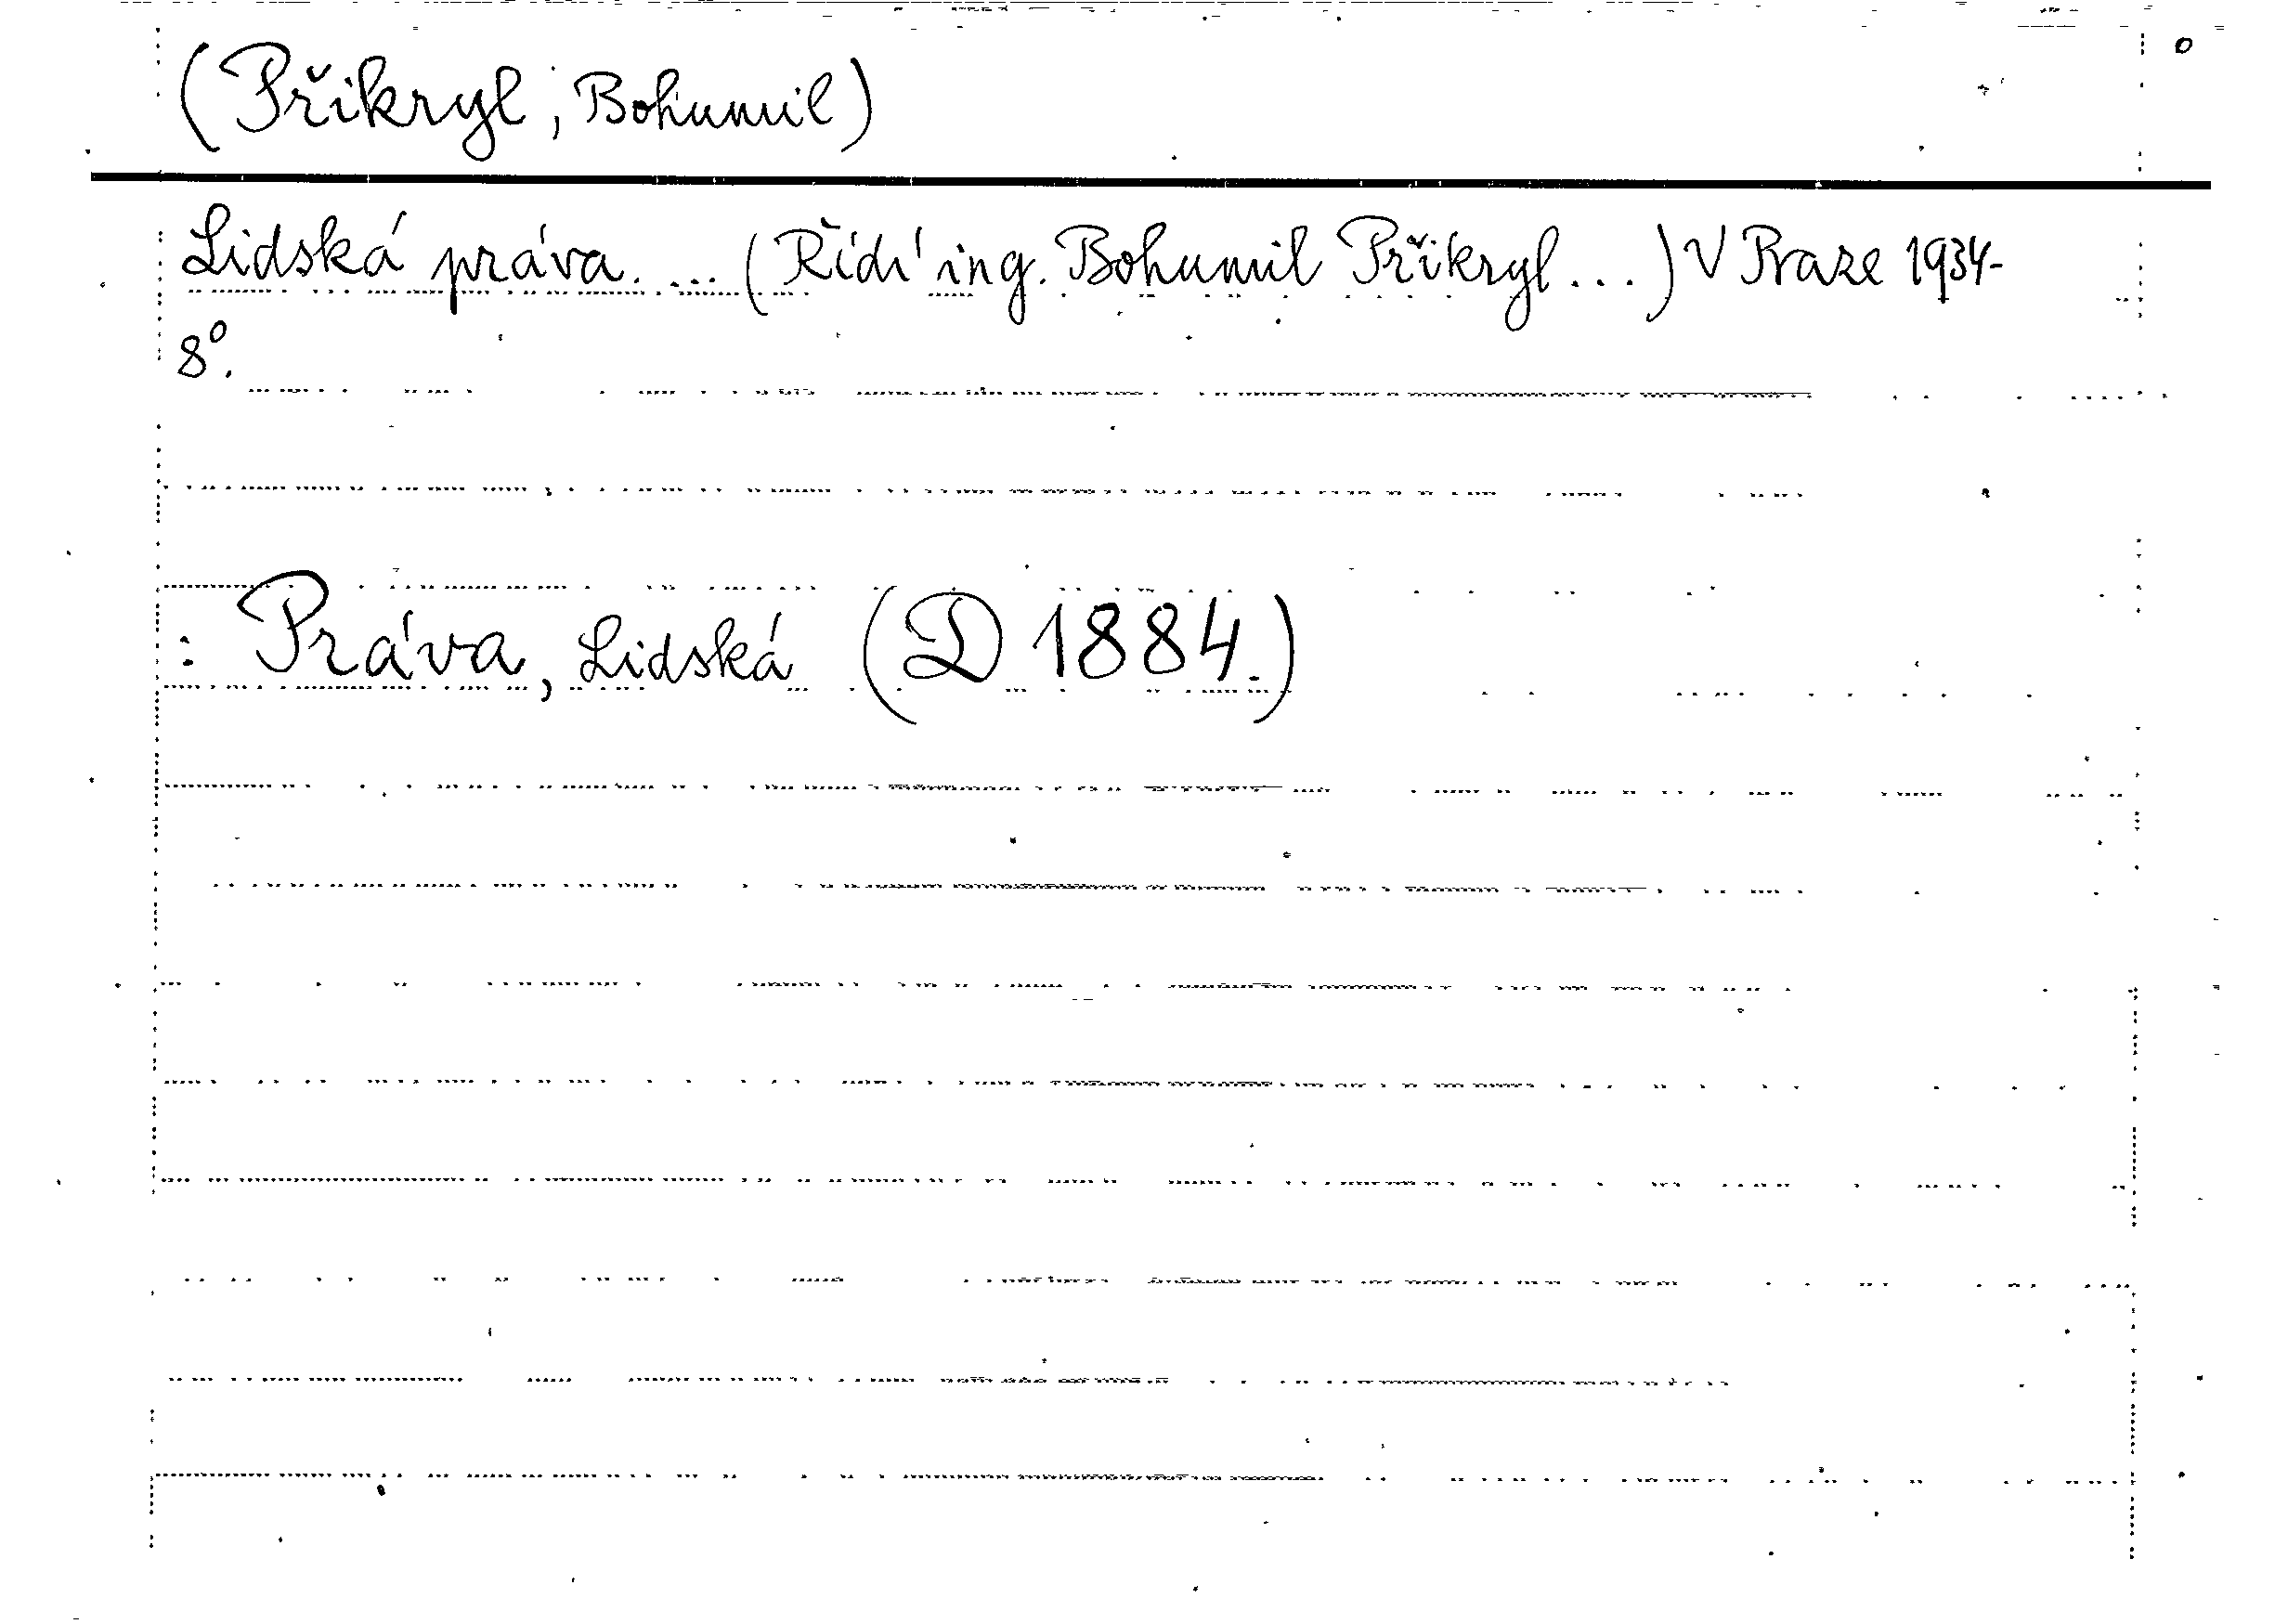 (Přikryl, Bohumil)
Lidská práva. ... (Řídí ing. Bohumil Přikryl ...) V Praze 1934-
8°.
: Práva, Lidská (D 1884.)